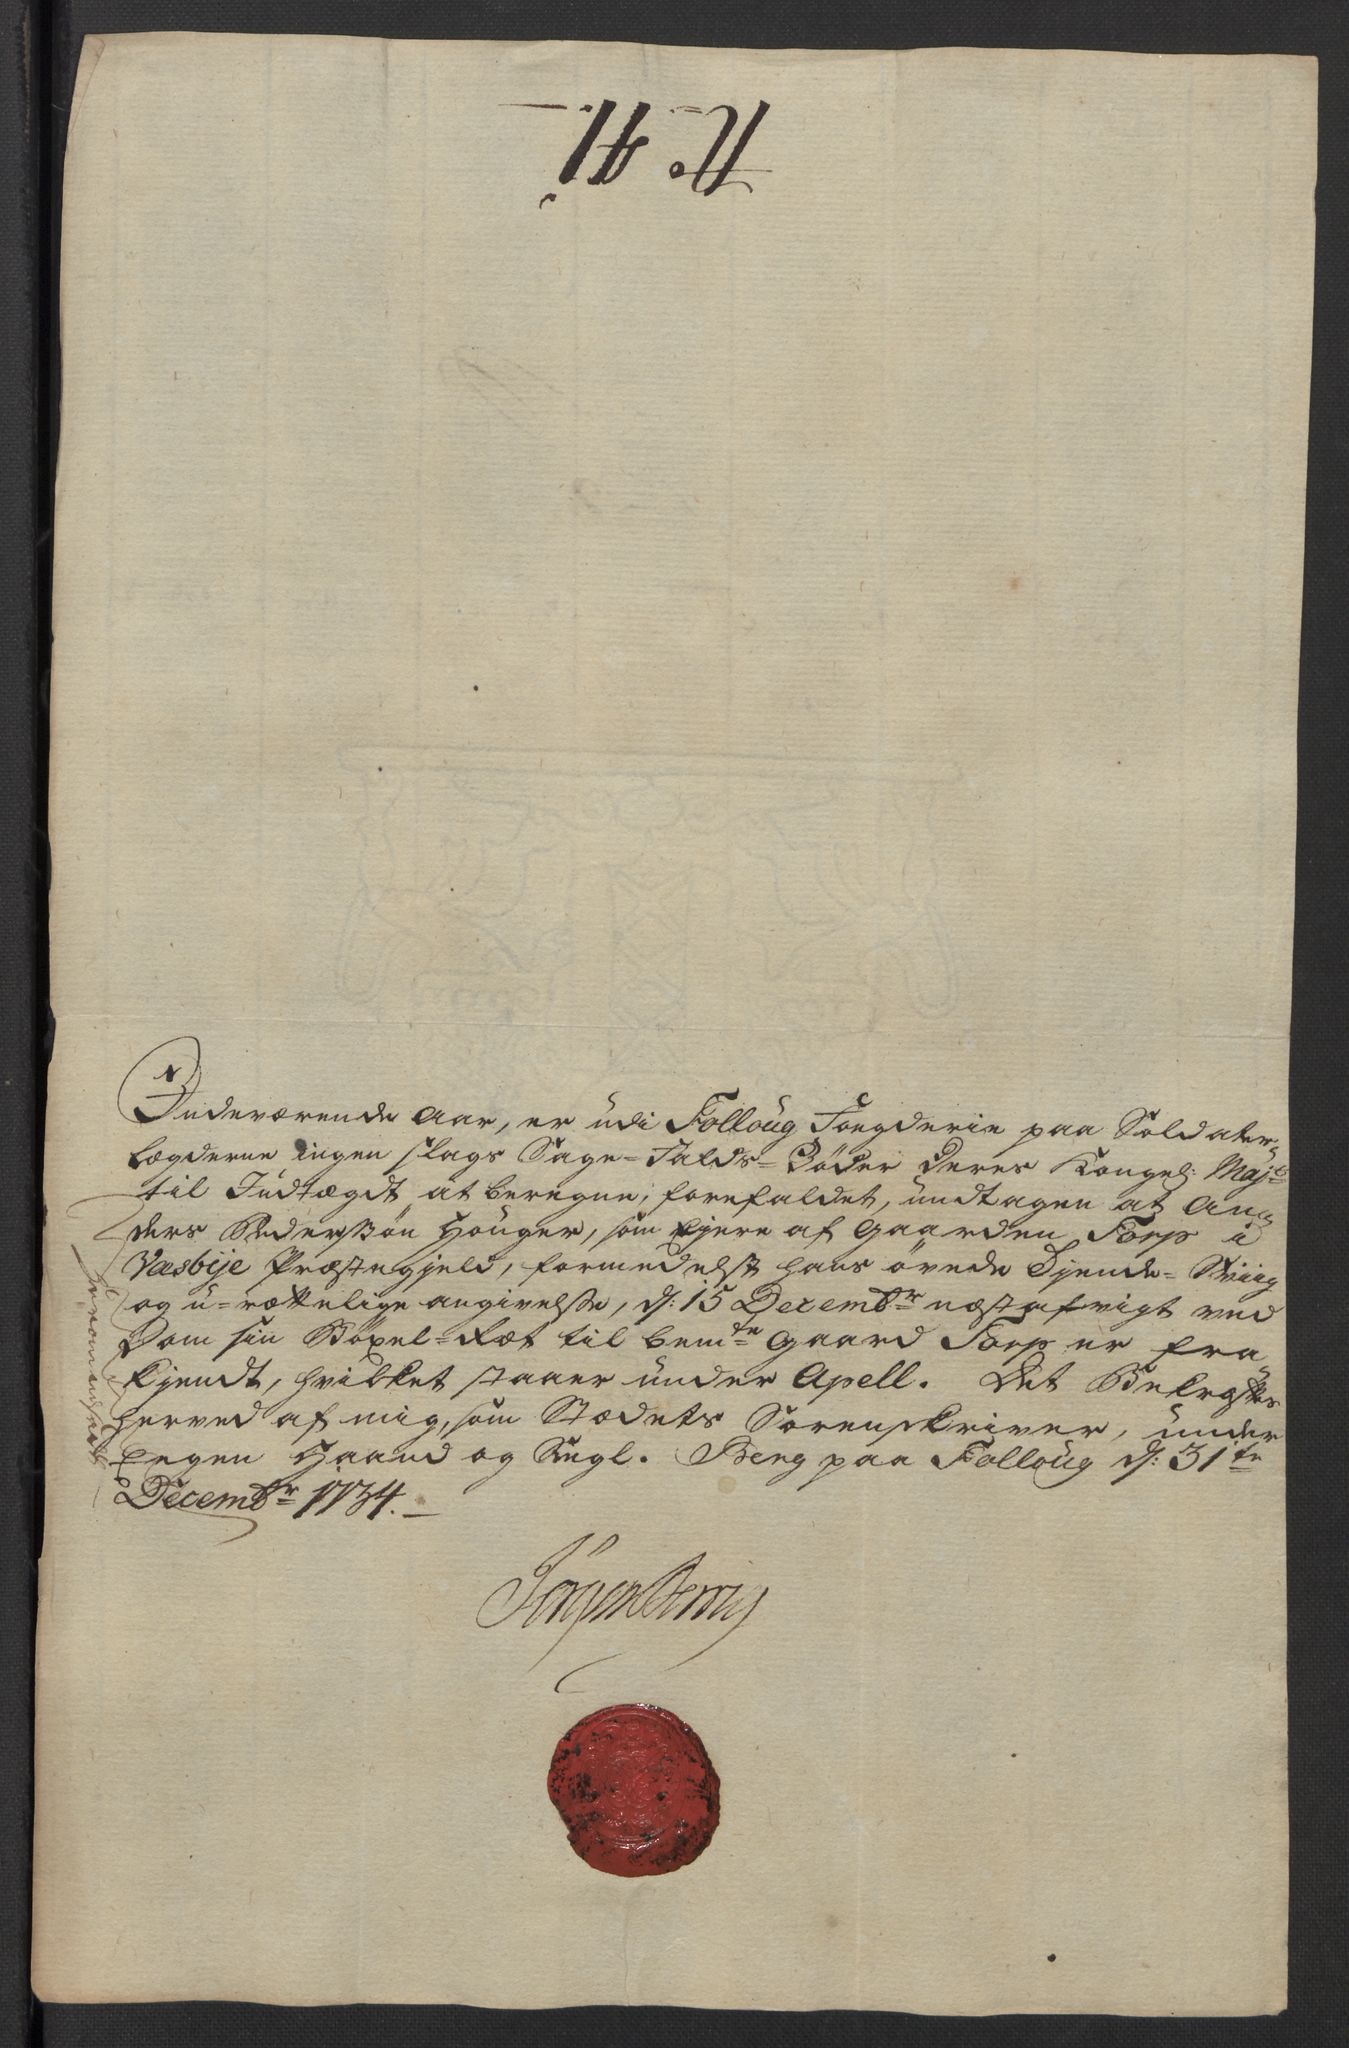 No 41
Indeværende Aar, er udi Follóug Fogderie paa Soldater=
Lægderne ingen slags Sage=Falds=Bøder Deres Kongel: Majts
til Indtægdt at beregne, forefaldet, undtagen at An=
ders Pederssøn Houger, som Ejere af Gaarden Torp i
Væsbÿe Præstegjeld, formedelst hans øvede Tjende= Sviig
og u=rættelige angivelse, d: 15 Decembr næst afvigt ved
Dom sin Bøxel=Ræt til bemte Gaard Torp er fra=
kjendt, hvilket staaer under Apell. Det Bekræftes
herved af mig, som Stædets Sorenskriver, under
Egen Haand og Segl. Berg paa Follóug d: 31te
Decembr 1734.